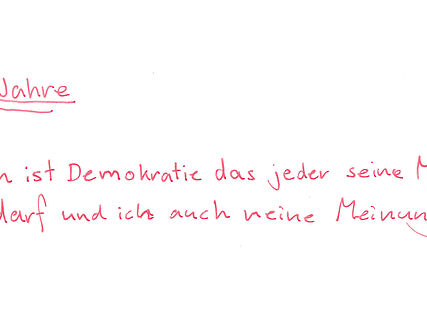 Jahre
n ist Demokratie das jeder seine M
darf und ich auch meine Meinun